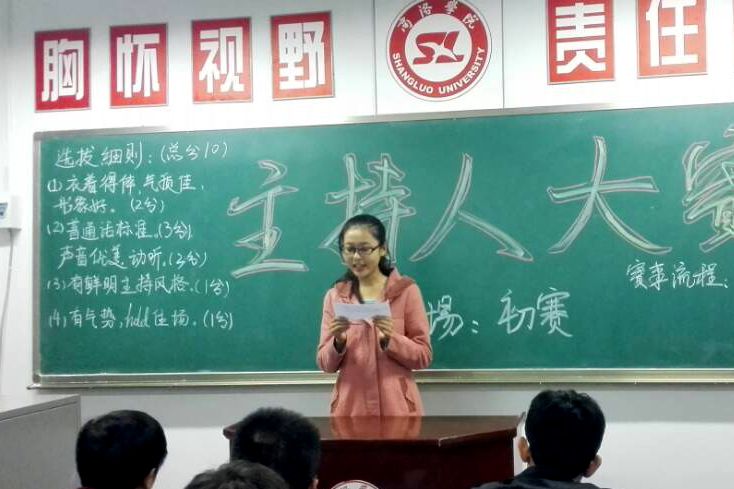 胸怀视野
商洛学院
SHANGLUO UNIVERSITY
责任
选拔细则：(总分10)
(1) 衣着得体，气质佳，
形象好。(2分)
(2) 普通话标准。(3分)
声音优美动听。(2分)
(3) 有鲜明主持风格。(1分)
(4) 有气势，hold住场。(1分)
主持人大赛
场：初赛
赛事流程：